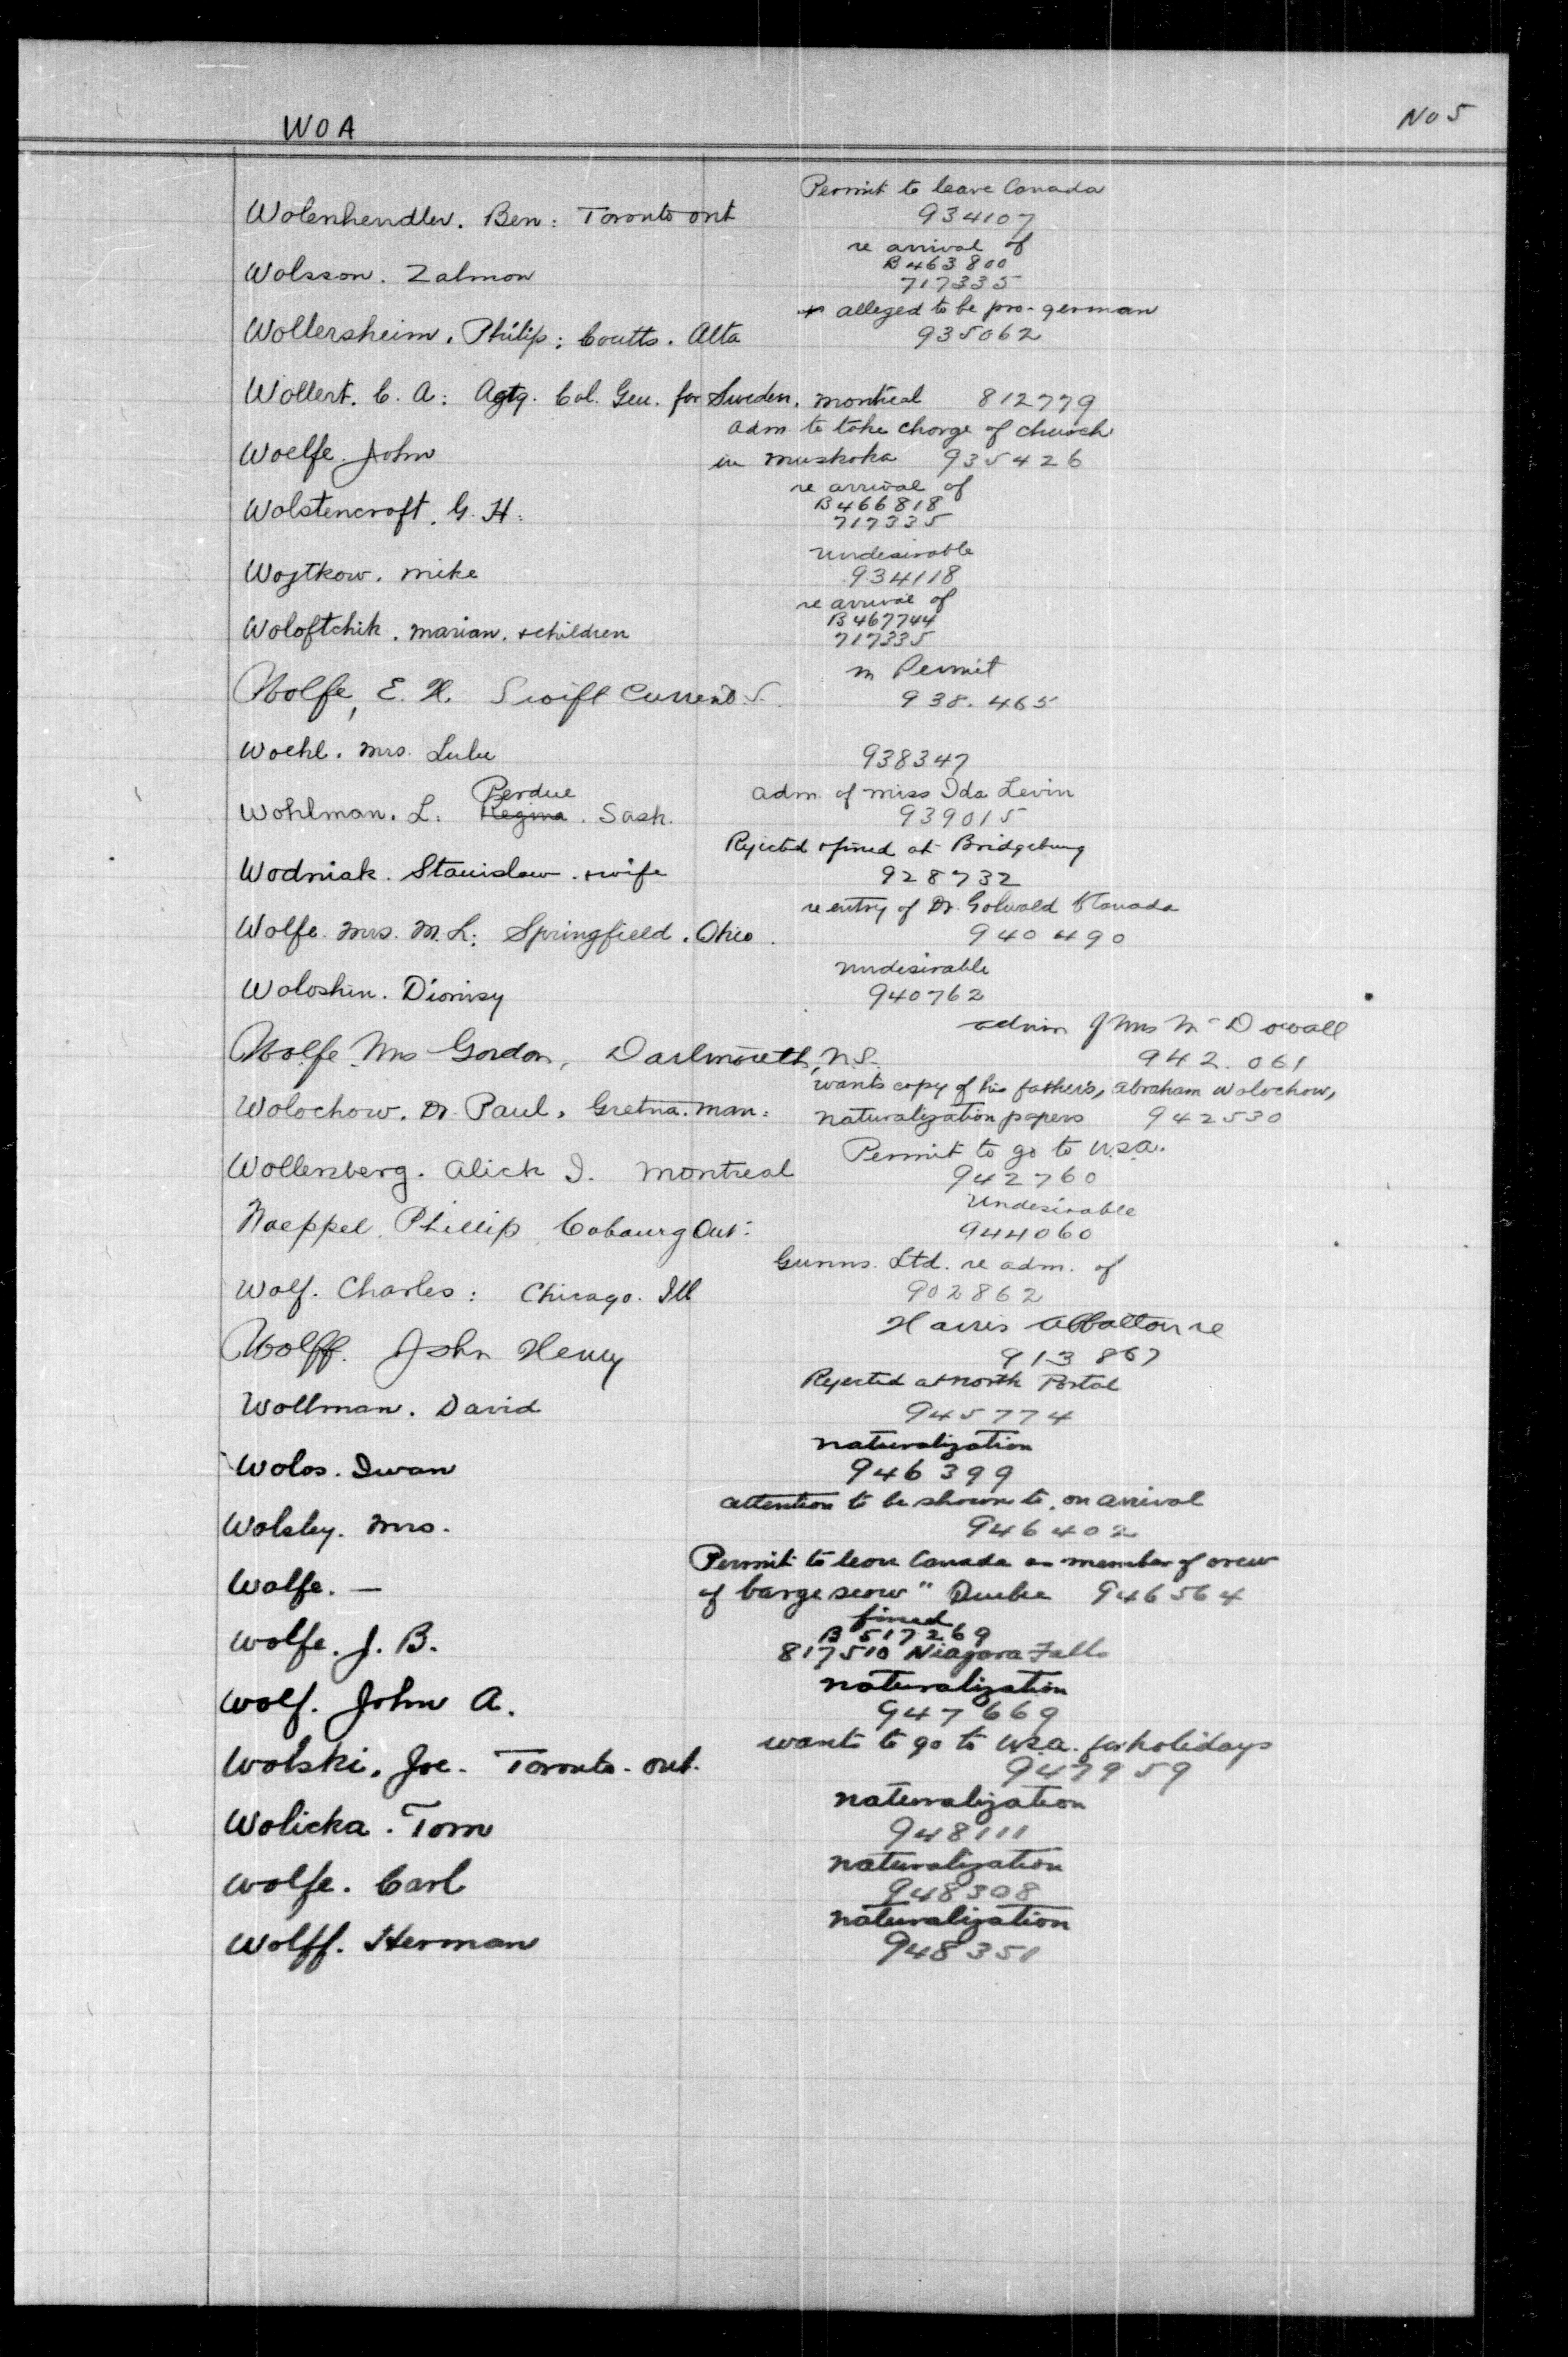 WOA
No 5
Permit to leave Canada
Wolenhendler. Ben: Toronto ont
934107
re arrival of
B463800
Wolsson. Zalmon
717335
alleged to be pro-german
Wollersheim. Philip: Coutts. Alta
935062
Wollert. C. A: Agtg. Col. Gen. for Sweden. montreal 812779
adm. to take charge of church
Woelfe. John
in muskoka 935426
re arrival of
B466818
Wolstencroft. G. H:
717335
undesirable
Wojtkow. mike
934118
re arrival of
B467744
Woloftchik. marian. +children
717335
m Permit
Wolfe, E. H. Swift Current. S.
938.465
Woehl. mrs. Lulu
938347
adm. of miss Ida Levin
Perdue
Wohlman. L: Regina. Sask.
939015
Rejected +fined at Bridgeburg
Wodniak. Stanislaw. +wife
928732
re entry of Dr. Golwald to Canada
Wolfe. mrs. M. L: Springfield. Ohio.
940490
undesirable
Woloshin. Dionisy
940762
admn of Mrs McDowall
Wolfe. Mrs Gordon, Dartmouth, N.S.
942.061
wants copy of his father's, abraham Wolochow,
Wolochow. Dr. Paul. Gretna. man:
naturalization papers 942530
Permit to go to U.S.A.
Wollenberg. Alick I. montreal
942760
Undesirable
Woeppel. Phillip. Cobourg Ont.
944060
Gunns. Ltd. re adm. of
Wolf. Charles: Chicago. Ill
902862
Harris Abbattoir re
Wolff. John Henry
913867
Rejected at north Portal
Wollman. David
945774
naturalization
Wolos. Iwan
946399
attention to be shown to, on arrival
Wolsley. mrs.
946402
Permit to leave Canada as member of crew
Wolfe. —
of barge scow " 946564
fined
B 517269
Wolfe. J. B.
817510 Niagara Falls
naturalization
Wolf. John A.
947669
wants to go to U.S.A. for holidays
Wolski. Joe. Toronto. ont.
947959
naturalization
Wolicka. Tom
948111
naturalization
Wolfe. Carl
948308
naturalization
Wolff. Herman
948351